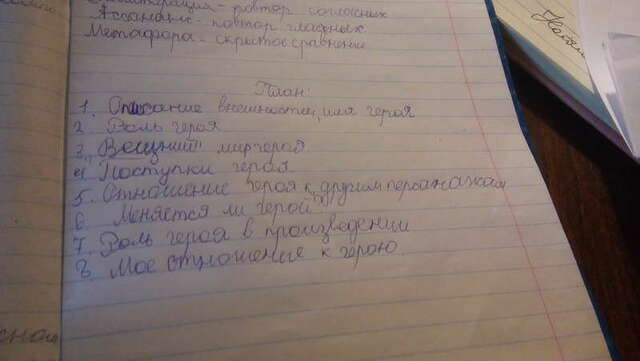 Аллитерация - повтор согласных
Ассонанс - повтор гласных
Метафора - скрытое сравнение
План:
1. Описание внешности, имя героя
2 Роль героя
3. Вещний мир героя
4 Поступки героя
5. Отношение героя к другим персонажам
6. Меняется ли герой
7. Роль героя в произведении
8. Мое отношение к герою